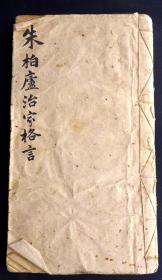 朱柏廬治家格言